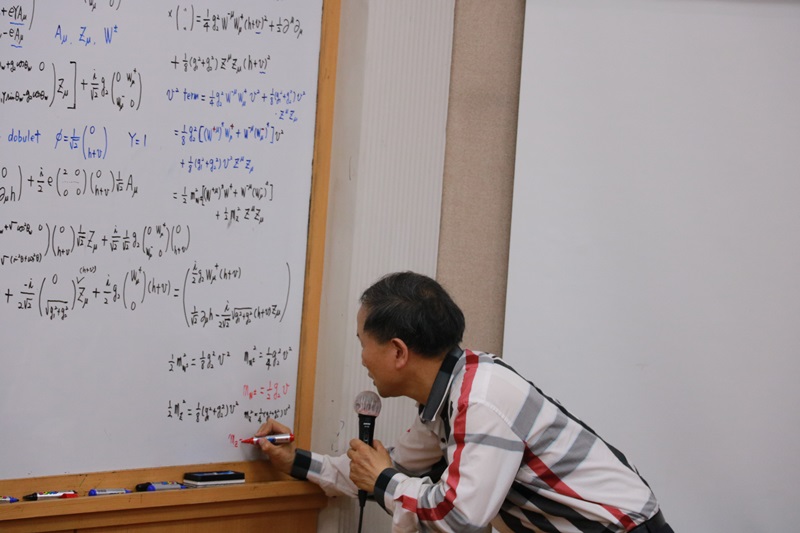 + eγA_μ
- eA_μ
A_μ, Z_μ, W^±
0
) Z_μ ] + i/√2 g_2 ( 0 W_μ^+
W_μ^- 0 )
dobulet φ = 1/√2 ( 0
h+v ) Y=1
0
∂_μh ) + i/2 e ( 2 0
0 0 ) ( 0
h+v ) 1/√2 A_μ
0 ) ( 0
h+v ) 1/√2 Z_μ + i/√2 1/√2 g_2 ( 0 W_μ^+
W_μ^- 0 ) ( 0
h+v )
+ -i/2√2 ( 0
√g_1²+g_2² ) Z_μ (h+v) + i/2 g_2 ( W_μ^+
0 ) (h+v) = ( i/2 g_2 W_μ^+ (h+v)
1/√2 ∂_μh - i/2√2 √g_1²+g_2² (h+v) Z_μ )
x ( : ) = 1/4 g_2² W^-μ W_μ^+ (h+v)² + 1/2 ∂^μ ∂_μ
+ 1/8 (g_1²+g_2²) Z^μ Z_μ (h+v)²
v² term = 1/4 g_2² W^-μ W_μ^+ v² + 1/8 (g_1²+g_2²) v²
· Z^μ Z_μ
= 1/8 g_2² [ (W^+μ)^† W_μ^+ + W^-μ (W_μ^-)^† ] v²
+ 1/8 (g_1²+g_2²) v² Z^μ Z_μ
= 1/2 m_W² [ (W^+μ)^† W^+ + W^-μ (W_μ^-)^† ]
+ 1/2 m_Z² Z^μ Z_μ
1/2 m_W±² = 1/8 g_2² v² m_W±² = 1/4 g_2² v²
m_W± = 1/2 g_2 v
1/2 m_Z² = 1/8 (g_1²+g_2²) v² m_Z² = 1/4 (g_1²+g_2²) v²
m_Z